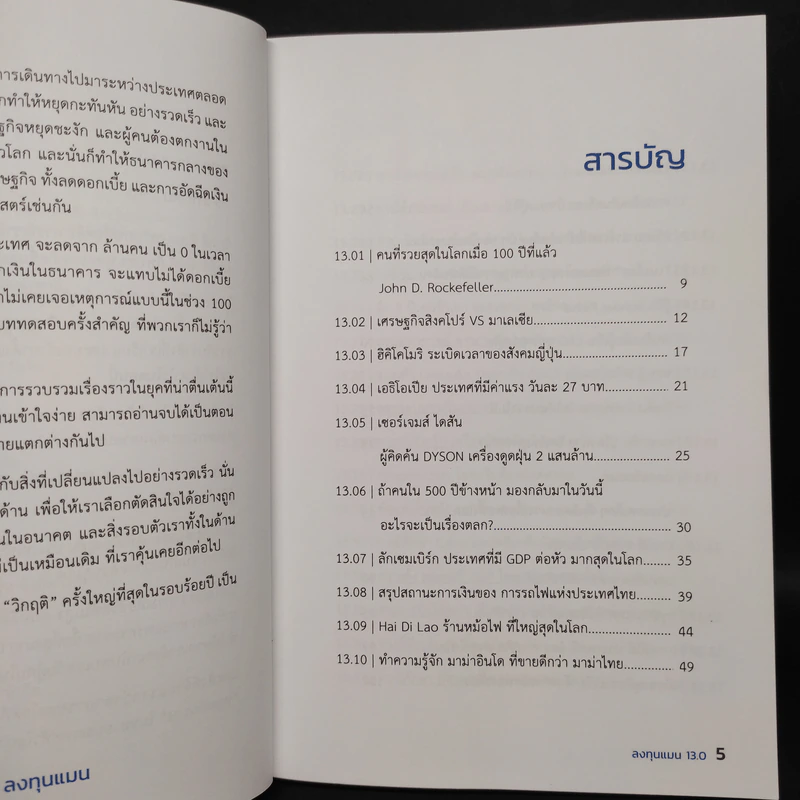 การเดินทางไปมาระหว่างประเทศตลอด
ทำให้หยุดกะทันหัน อย่างรวดเร็ว และ
ฐกิจหยุดชะงัก และผู้คนต้องตกงานใน
โลก และนั่นก็ทำให้ธนาคารกลางของ
ศรษฐกิจ ทั้งลดดอกเบี้ย และการอัดฉีดเงิน
สตร์เช่นกัน
ะเทศ จะลดจาก ล้านคน เป็น 0 ในเวลา
กเงินในธนาคาร จะแทบไม่ได้ดอกเบี้ย
ไม่เคยเจอเหตุการณ์แบบนี้ในช่วง 100
บททดสอบครั้งสำคัญ ที่พวกเราก็ไม่รู้ว่า
การรวบรวมเรื่องราวในยุคที่น่าตื่นเต้นนี้
านเข้าใจง่าย สามารถอ่านจบได้เป็นตอน
ายแตกต่างกันไป
กับสิ่งที่เปลี่ยนแปลงไปอย่างรวดเร็ว นั่น
ด้าน เพื่อให้เราเลือกตัดสินใจได้อย่างถูก
นในอนาคต และสิ่งรอบตัวเราทั้งในด้าน
เป็นเหมือนเดิม ที่เราคุ้นเคยอีกต่อไป
“วิกฤติ” ครั้งใหญ่ที่สุดในรอบร้อยปี เป็น
ลงทุนแมน
สารบัญ
13.01 | คนที่รวยสุดในโลกเมื่อ 100 ปีที่แล้ว
John D. Rockefeller.......................................... 9
13.02 | เศรษฐกิจสิงคโปร์ VS มาเลเซีย................................. 12
13.03 | ฮิคิโคโมริ ระเบิดเวลาของสังคมญี่ปุ่น.......................... 17
13.04 | เอธิโอเปีย ประเทศที่มีค่าแรง วันละ 27 บาท............... 21
13.05 | เซอร์เจมส์ ไดสัน
ผู้คิดค้น DYSON เครื่องดูดฝุ่น 2 แสนล้าน................... 25
13.06 | ถ้าคนใน 500 ปีข้างหน้า มองกลับมาในวันนี้
อะไรจะเป็นเรื่องตลก?............................................ 30
13.07 | ลักเซมเบิร์ก ประเทศที่มี GDP ต่อหัว มากสุดในโลก....... 35
13.08 | สรุปสถานะการเงินของ การรถไฟแห่งประเทศไทย......... 39
13.09 | Hai Di Lao ร้านหม้อไฟ ที่ใหญ่สุดในโลก.................... 44
13.10 | ทำความรู้จัก มาม่าอินโด ที่ขายดีกว่า มาม่าไทย............. 49
ลงทุนแมน 13.0 5